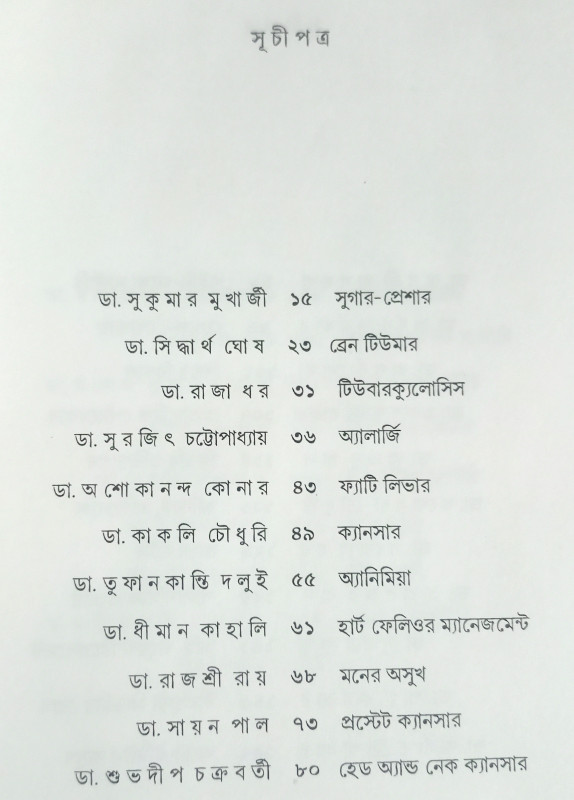 সূচীপত্র
ডা. সুকুমার মুখার্জী ১৫ সুগার-প্রেশার
ডা. সিদ্ধার্থ ঘোষ ২৩ ব্রেন টিউমার
ডা. রাজা ধর ৩১ টিউবারক্যুলোসিস
ডা. সুরজিৎ চট্টোপাধ্যায় ৩৬ অ্যালার্জি
ডা. অশোকানন্দ কোনার ৪৩ ফ্যাটি লিভার
ডা. কাকলি চৌধুরি ৪৯ ক্যানসার
ডা. তুফানকান্তি দলুই ৫৫ অ্যানিমিয়া
ডা. ধীমান কাহালি ৬১ হার্ট ফেলিওর ম্যানেজমেন্ট
ডা. রাজশ্রী রায় ৬৮ মনের অসুখ
ডা. সায়ন পাল ৭৩ প্রস্টেট ক্যানসার
ডা. শুভদীপ চক্রবর্তী ৮০ হেড অ্যান্ড নেক ক্যানসার